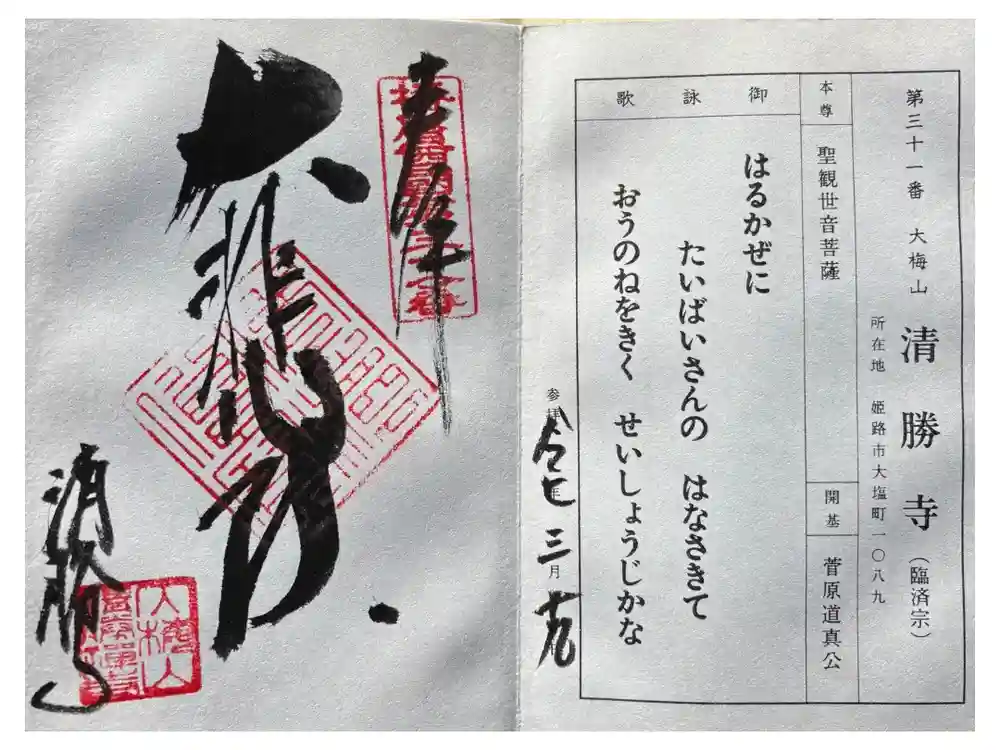 第三十一番　大梅山　清勝寺（臨済宗）
所在地　姫路市大塩町一〇八九
本尊　聖観世音菩薩
開基　菅原道真公
御詠歌
はるかぜに
たいばいさんの　はなさきて
おうのねをきく　せいしょうじかな
参拝 令七年 三月 十九
奉拝
大悲心
清勝寺
大梅山